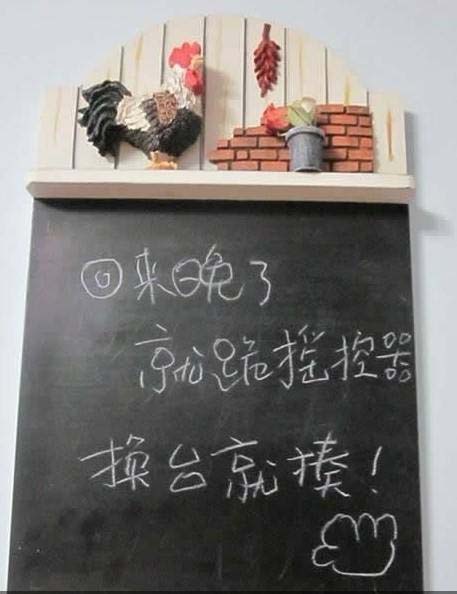 回来晚了
就跪摇控器
换台就揍!